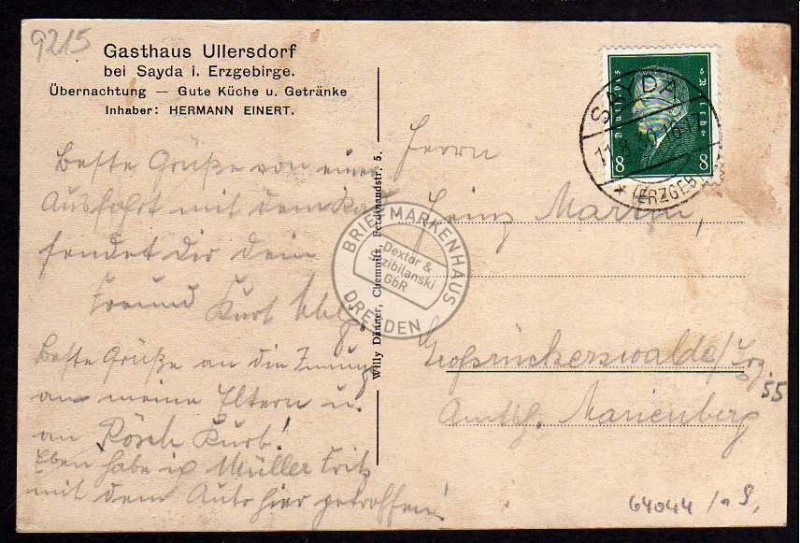 9215
Gasthaus Ullersdorf
bei Sayda i. Erzgebirge.
Übernachtung — Gute Küche u. Getränke
Inhaber: HERMANN EINERT.
Beste Grüße von einer
Ausfahrt mit dem
sendet dir dein
Freund Kurt
Beste Grüße an die
an meine Eltern u.
an Kurt!
Eben habe ich Müller Fritz
mit dem Auto hier getroffen!
Willy Dänner, Chemnitz, Ferdinandstr. 5.
BRIEFMARKENHAUS
Dexter &
GbR
DRESDEN
Deutsches Reich
8 8
SAYDA
(ERZGEB)
Herrn
Heinz Martin,
Großrückerswalde/Erz.
55
Amtsh. Marienberg
64044